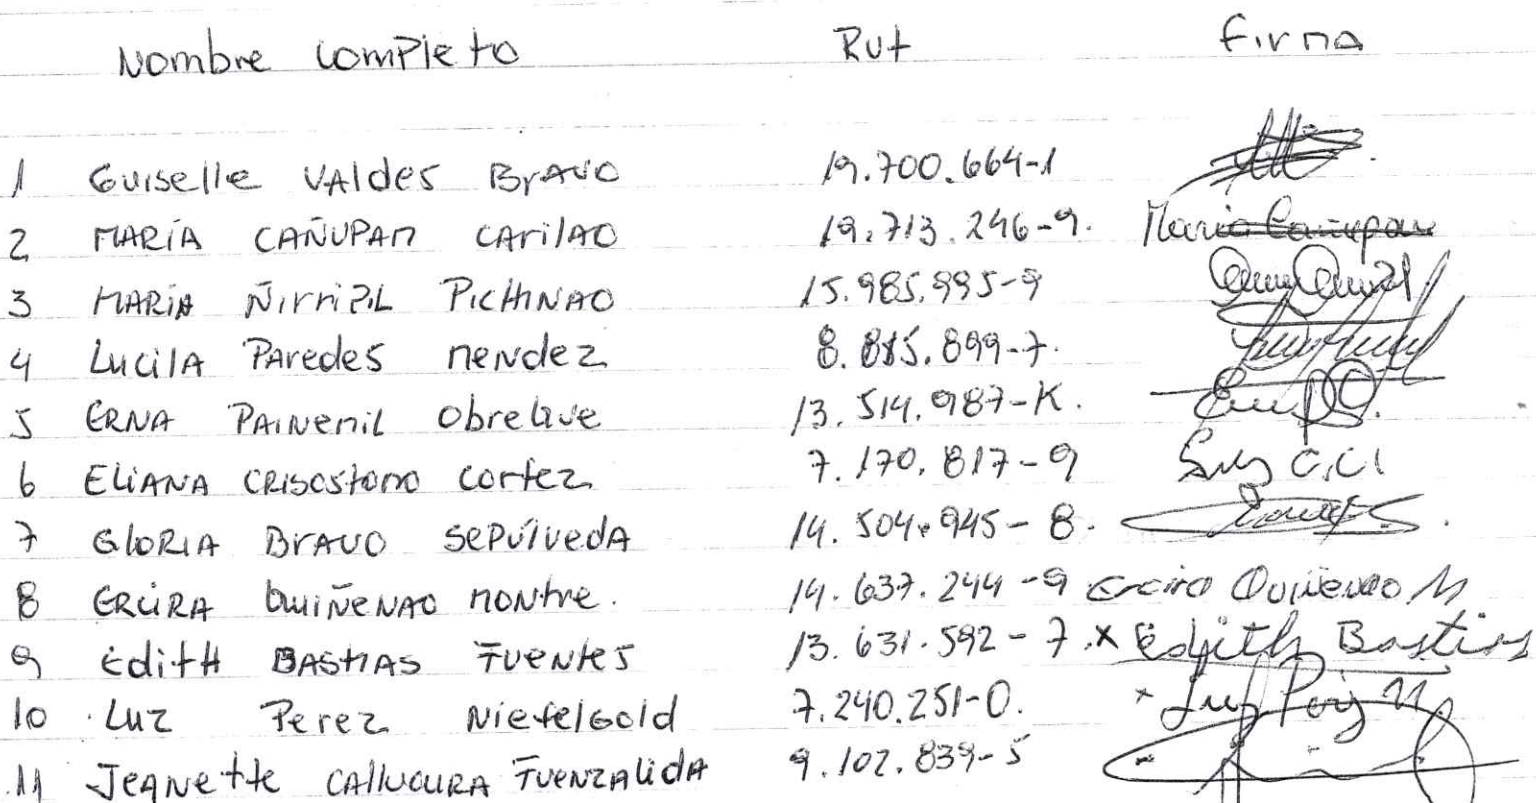 Nombre Completo Rut Firma
1 Guiselle Valdes Bravo 19.700.664-1
2 María Cañupan Carilao 19.713.246-9. Maria Cañupan
3 María Ñirripil Pichinao 15.985.995-9
4 Lucila Paredes Mendez 8.885.899-7.
5 Erna Painemil Obreque 13.514.987-K.
6 Eliana Crisostomo Cortez 7.170.817-9
7 Gloria Bravo Sepúlveda 14.504.945-8.
8 Quiñenao Montre. 14.637.244-9
9 Edith Bastias Fuentes 13.631.592-7. x Edith Bastias
10 Luz Perez Niefelgold 7.240.251-0. x Luz
11 Jeanette Callucura Fuenzalida 9.102.839-5